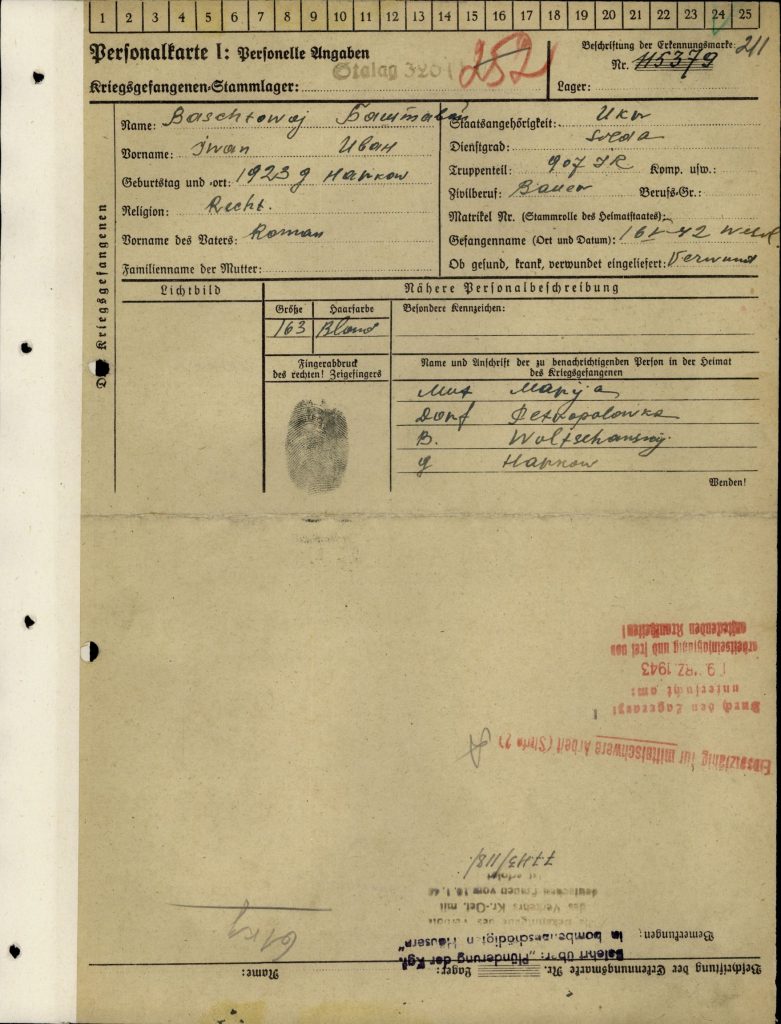 1 2 3 4 5 6 7 8 9 10 11 12 13 14 15 16 17 18 19 20 21 22 23 24 25
Personalkarte I: Personelle Angaben
Beschriftung der Erkennungsmarke: 211
Stalag 326
252
Nr. 115379
Kriegsgefangenen-Stammlager:
Lager:
Des Kriegsgefangenen
Name: Baschtowoj
Staatsangehörigkeit: Ukr
Vorname: Iwan Иван
Dienstgrad: Solda
Geburtstag und -ort: 1923 g Harkow
Truppenteil: 907 IR Komp. usw.:
Religion: Recht.
Zivilberuf: Bauer Berufs-Gr.:
Vorname des Vaters: Roman
Matrikel Nr. (Stammrolle des Heimatstaates):
Gefangenname (Ort und Datum):
Familienname der Mutter:
Ob gesund, krank, verwundet eingeliefert: Verwund
Lichtbild
Nähere Personalbeschreibung
Größe Haarfarbe
Besondere Kennzeichen:
163 Bland
Fingerabdruck
des rechten! Zeigefingers
Name und Anschrift der zu benachrichtigenden Person in der Heimat
des Kriegsgefangenen
Mut Marija
Dorf Petropolowka
B. Woltschanskij
g Harkow
Wenden!
Durch den Lagerarzt
untersucht am:
1943
arbeitseinsatzfähig und frei von
ansteckenden Krankheiten!
Einsatzfähig für mittelschwere Arbeit (Stufe 2)
Beschriftung der Erkennungsmarke Nr. Lager: Name:
Bemerkungen:
Belehrt über: „Plünderung der Kgf.
in bombenbeschädigten Häusern"
des Verkehrs Kr.-Gef. mit
deutschen Frauen vom
ist erfolgt